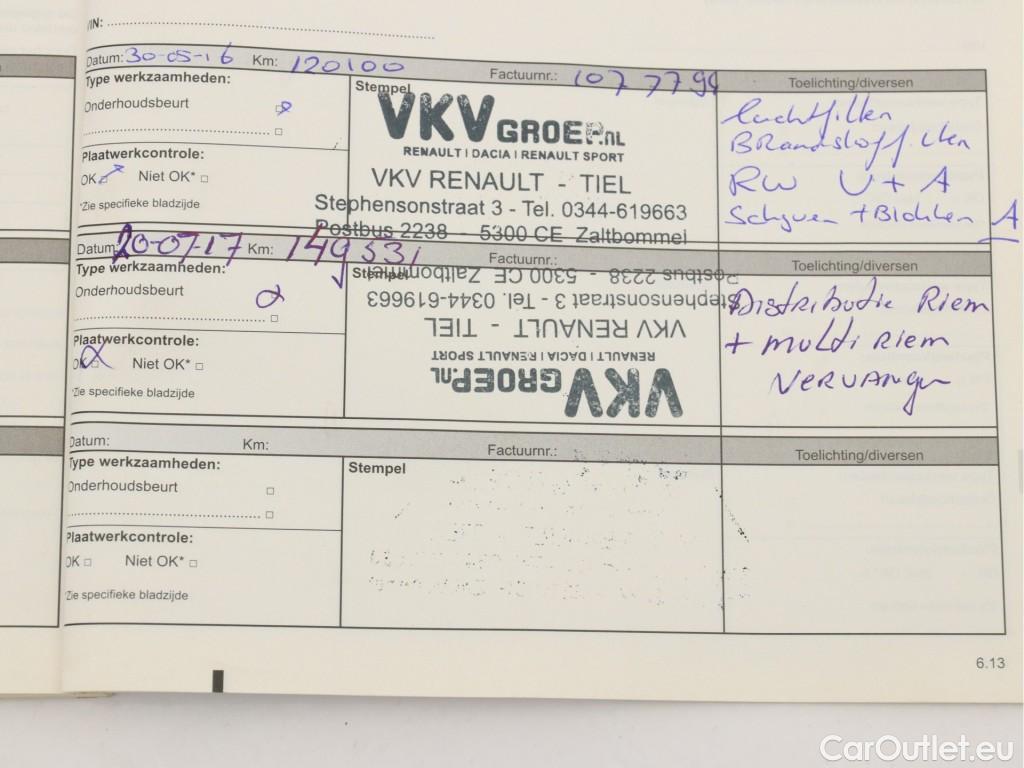 VIN:
Datum: 30-05-16 Km: 120100 Factuurnr.: 1077794 Toelichting/diversen
Type werkzaamheden:
Onderhoudsbeurt
Plaatwerkcontrole:
OK Niet OK*
*Zie specifieke bladzijde
Stempel
VKV GROEP.NL
RENAULT | DACIA | RENAULT SPORT
VKV RENAULT - TIEL
Stephensonstraat 3 - Tel. 0344-619663
Postbus 2238 - 5300 CE Zaltbommel
Luchtfilter
BRandstoffilter
RW V + A
Schyven + Blokken A
Datum: 20-07-17 Km: 149531 Factuurnr.: Toelichting/diversen
Type werkzaamheden:
Onderhoudsbeurt
Plaatwerkcontrole:
OK Niet OK*
*Zie specifieke bladzijde
Stempel
VKV GROEP.NL
RENAULT | DACIA | RENAULT SPORT
VKV RENAULT - TIEL
Stephensonstraat 3 - Tel. 0344-619663
Postbus 2238 - 5300 CE Zaltbommel
Distributie Riem
+ multi Riem
Vervangen
Datum: Km: Factuurnr.: Toelichting/diversen
Type werkzaamheden:
Onderhoudsbeurt
Plaatwerkcontrole:
OK Niet OK*
*Zie specifieke bladzijde
Stempel
6.13
CarOutlet.eu